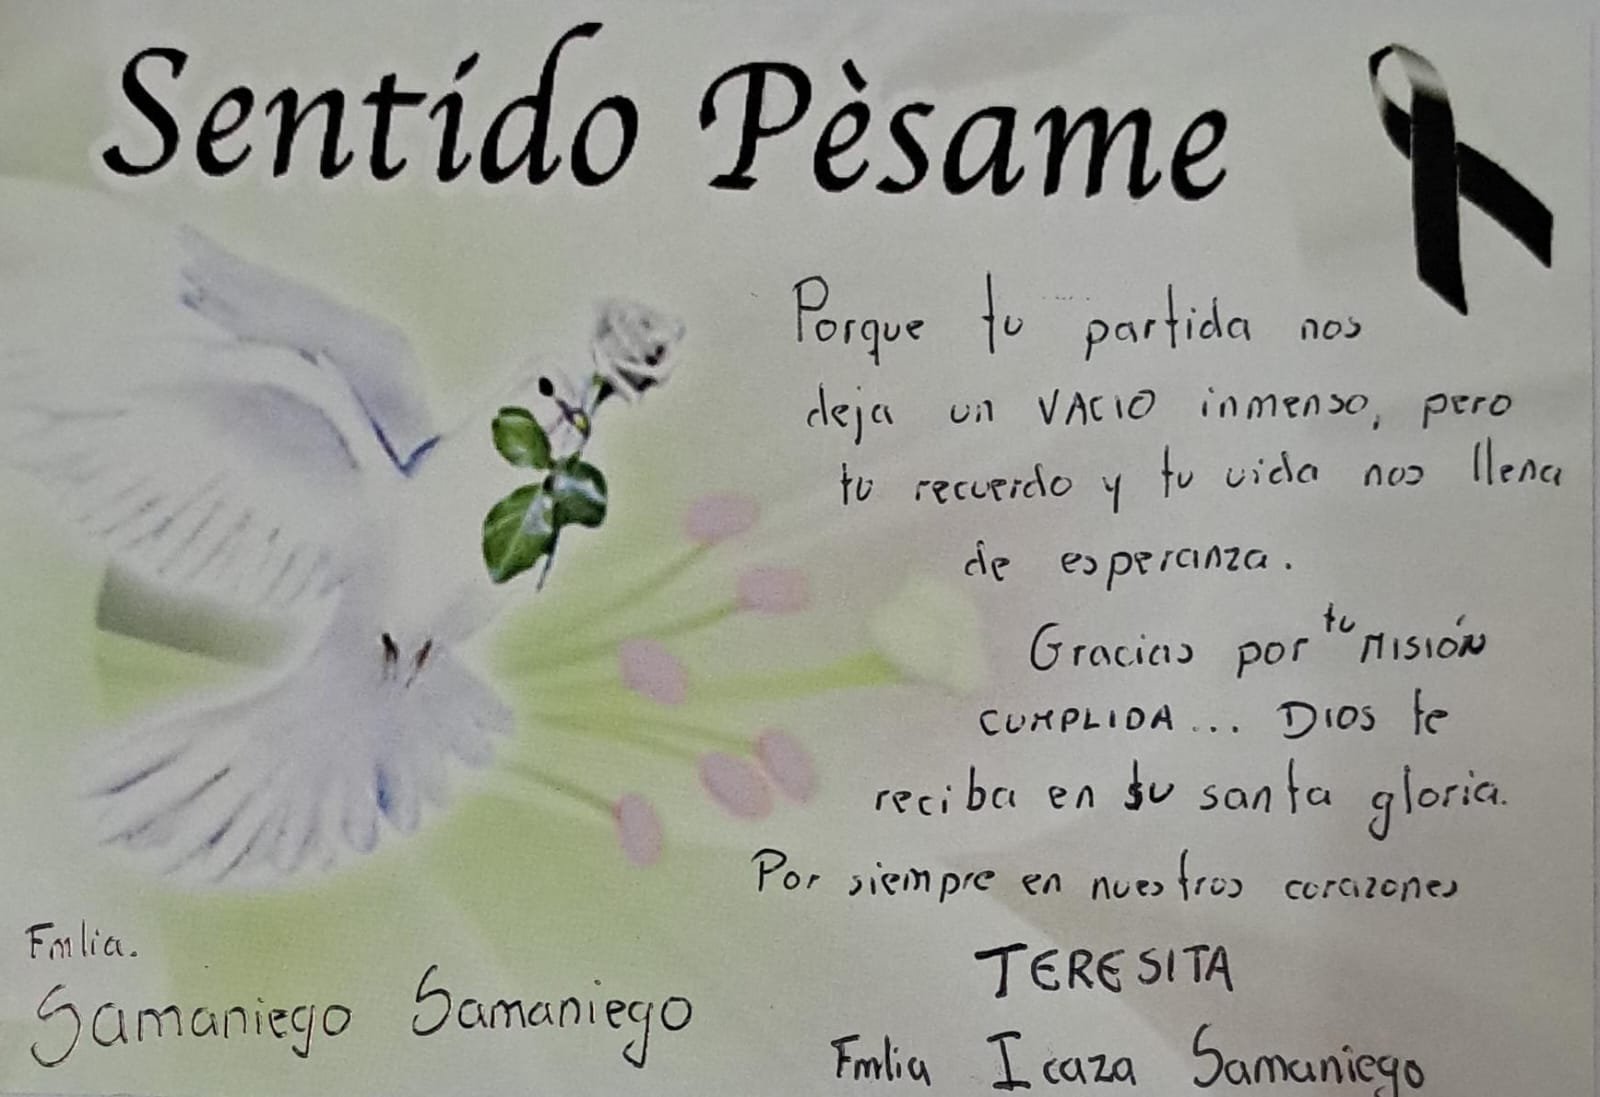 Sentido Pèsame
Porque tu partida nos
deja un VACIO inmenso, pero
tu recuerdo y tu vida nos llena
de esperanza.
Gracias por tu MISIÓN
CUMPLIDA... DIOS te
reciba en su santa gloria.
Por siempre en nuestros corazones
TERESITA
Fmlia.
Samaniego Samaniego
Fmlia Icaza Samaniego